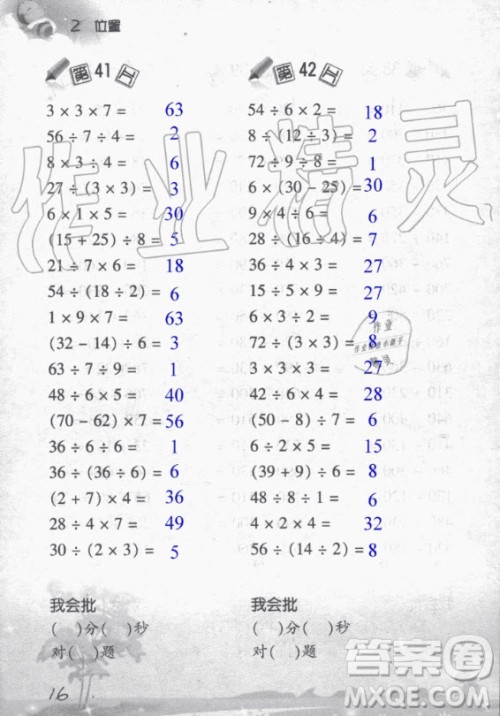 2 位置
第 41 天
3 × 3 × 7 = 63
56 ÷ 7 ÷ 4 = 2
8 × 3 ÷ 4 = 6
27 ÷ (3 × 3) = 3
6 × 1 × 5 = 30
(15 + 25) ÷ 8 = 5
21 ÷ 7 × 6 = 18
54 ÷ (18 ÷ 2) = 6
1 × 9 × 7 = 63
(32 − 14) ÷ 3 = 6
63 ÷ 7 ÷ 9 = 1
48 ÷ 6 × 5 = 40
(70 − 62) × 7 = 56
36 ÷ 6 ÷ 6 = 1
36 ÷ (36 ÷ 6) = 6
(2 + 7) × 4 = 36
28 ÷ 4 × 7 = 49
30 ÷ (2 × 3) = 5
我会批
( )分( )秒
对( )题
第 42 天
54 ÷ 6 × 2 = 18
8 ÷ (12 ÷ 3) = 2
72 ÷ 9 ÷ 8 = 1
6 × (30 − 25) = 30
9 × 4 ÷ 6 = 6
28 ÷ (16 ÷ 4) = 7
36 ÷ 4 × 3 = 27
15 ÷ 5 × 9 = 27
54 ÷ 2 ÷ 3 = 9
72 ÷ (3 × 3) = 8
63 ÷ 7 × 3 = 27
42 ÷ 6 × 4 = 28
(50 − 8) ÷ 7 = 6
6 ÷ 2 × 5 = 15
(39 + 9) ÷ 6 = 8
48 ÷ 8 ÷ 1 = 6
24 ÷ 3 × 4 = 32
56 ÷ (14 ÷ 2) = 8
我会批
( )分( )秒
对( )题
16
作业精灵
作业
答案圈
MXQE.COM